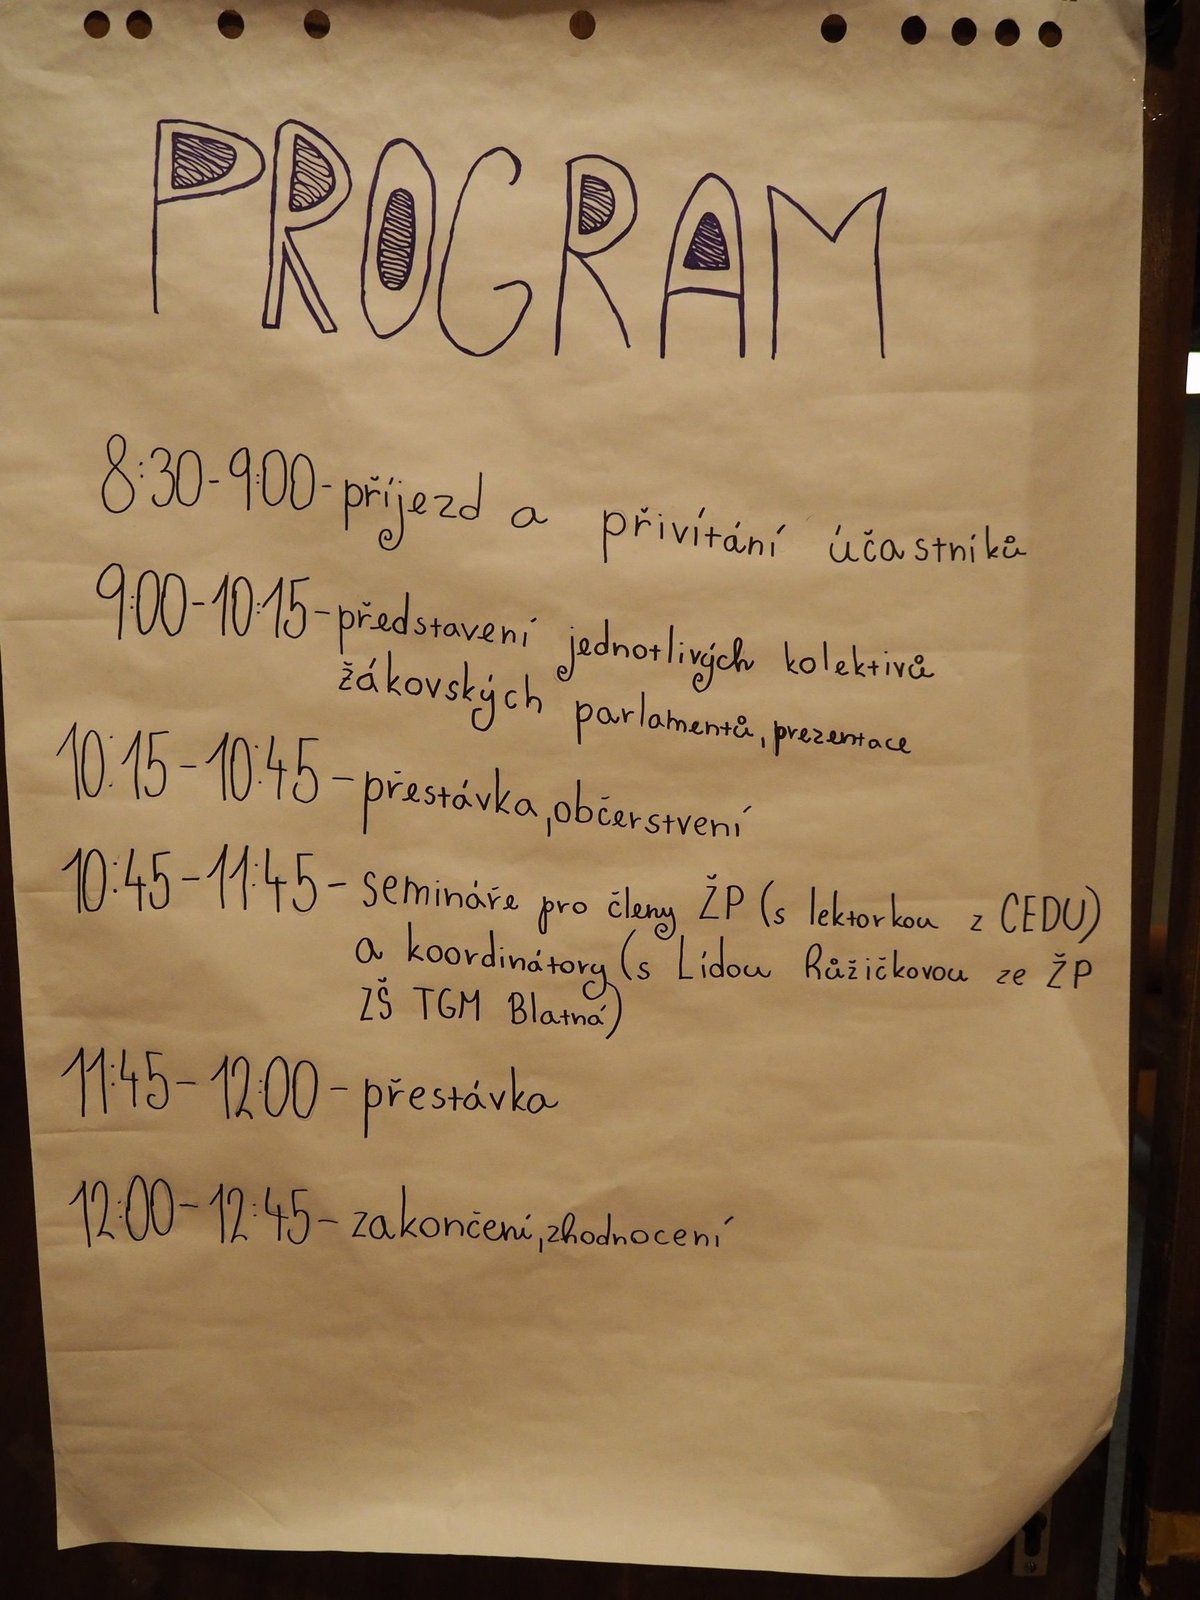 PROGRAM
8:30-9:00-příjezd a přivítání účastníků
9:00-10:15-představení jednotlivých kolektivů
žákovských parlamentů, prezentace
10:15-10:45-přestávka, občerstvení
10:45-11:45- semináře pro členy ŽP (s lektorkou z CEDU)
a koordinátory (s Lídou Růžičkovou ze ŽP
ZŠ TGM Blatná)
11:45-12:00-přestávka
12:00-12:45-zakončení, zhodnocení